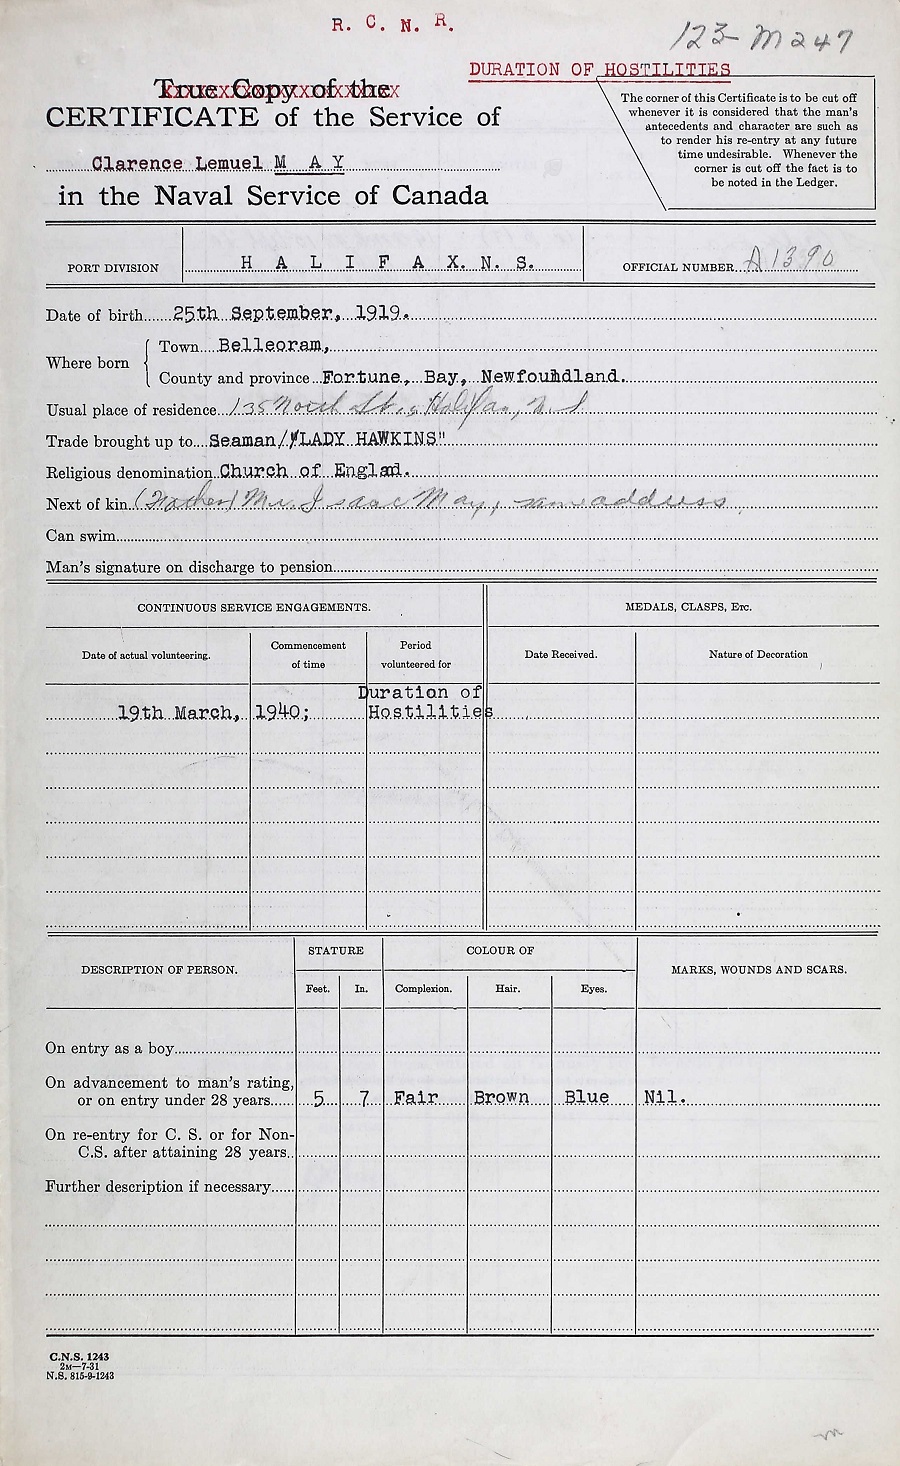 R. C. N. R.
123-M247
DURATION OF HOSTILITIES
True Copy of the
CERTIFICATE of the Service of
Clarence Lemuel M A Y
in the Naval Service of Canada
The corner of this Certificate is to be cut off
whenever it is considered that the man's
antecedents and character are such as
to render his re-entry at any future
time undesirable. Whenever the
corner is cut off the fact is to
be noted in the Ledger.
PORT DIVISION H A L I F A X. N. S. OFFICIAL NUMBER A1390
Date of birth 25th September, 1919.
Where born
Town Belleoram,
County and province Fortune, Bay, Newfoundland.
Usual place of residence 135 North St., Halifax, N.S
Trade brought up to Seaman/"LADY HAWKINS"
Religious denomination Church of Englad.
Next of kin (Father) Mr. Isaac May, same address
Can swim
Man's signature on discharge to pension
CONTINUOUS SERVICE ENGAGEMENTS. MEDALS, CLASPS, Etc.
Date of actual volunteering. Commencement of time Period volunteered for Date Received. Nature of Decoration
19th March, 1940; Duration of Hostilities
DESCRIPTION OF PERSON. STATURE COLOUR OF MARKS, WOUNDS AND SCARS.
Feet. In. Complexion. Hair. Eyes.
On entry as a boy
On advancement to man's rating,
or on entry under 28 years 5 7 Fair Brown Blue Nil.
On re-entry for C. S. or for Non-
C.S. after attaining 28 years
Further description if necessary
C.N.S. 1243
2M—7-31
N.S. 815-9-1243